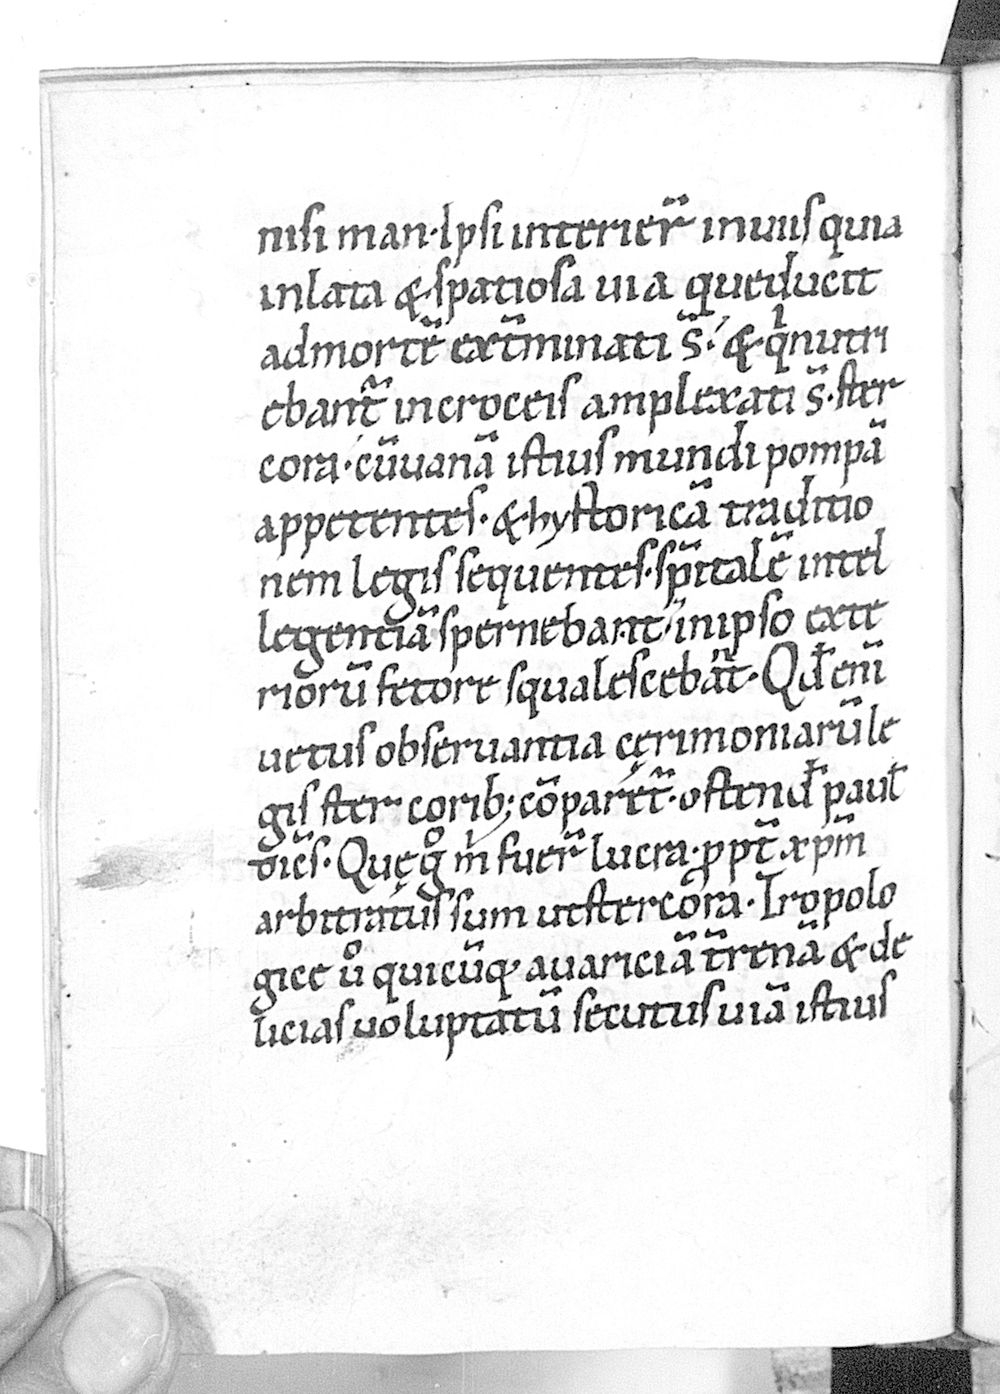 nisi man· Ipsi interier̄ inuiis quia
inlata &spatiosa uia queducit
admortē ext̄minati s̄· & qͥ nutri
ebant̄ incroceis amplexati s̄· ster
cora· cū uanā istius mundi pompā
appetentes· & hystoricā traditio
nem legis sequentes· sp̄italē intel
legentiā spernebant· inipso exte
riorū fetore squalescebāt· Qd̄ enī
uetus obseruantia cęrimoniarū le
gis stercorib; cōparet̄· ostend̄ paul̄
dicēs· Quęgͦ m̄ fuer̄ lucra· ꝓpt̄ xp̄m
arbitratus sum utstercora· Tropolo
gice uͦ quicūq· auariciā t̄renā & de
licias uoluptatū secutus uiā istius